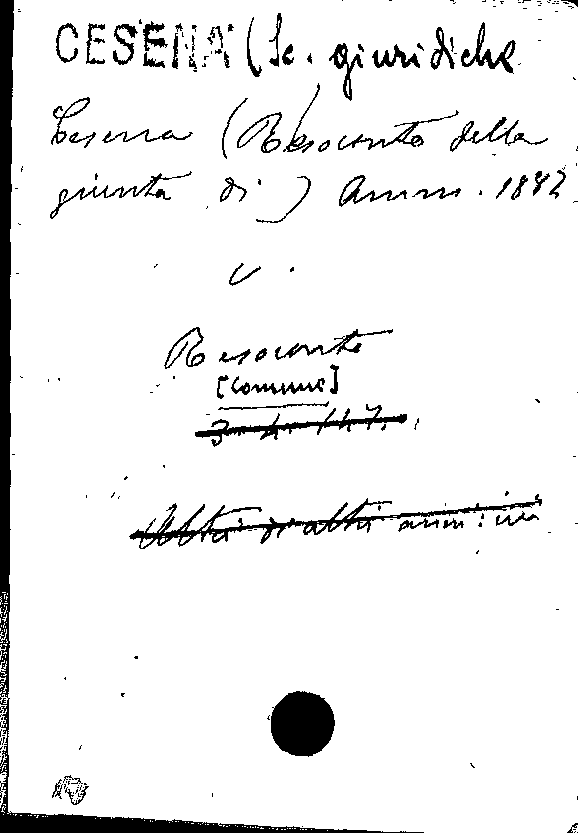 CESENA (Sc. giuridiche
Cesena (Resoconto della
giunta di) Amm. 1882
v.
Resoconto
[Comune]
3. 4. 147.
Altri di altri anni: ivi